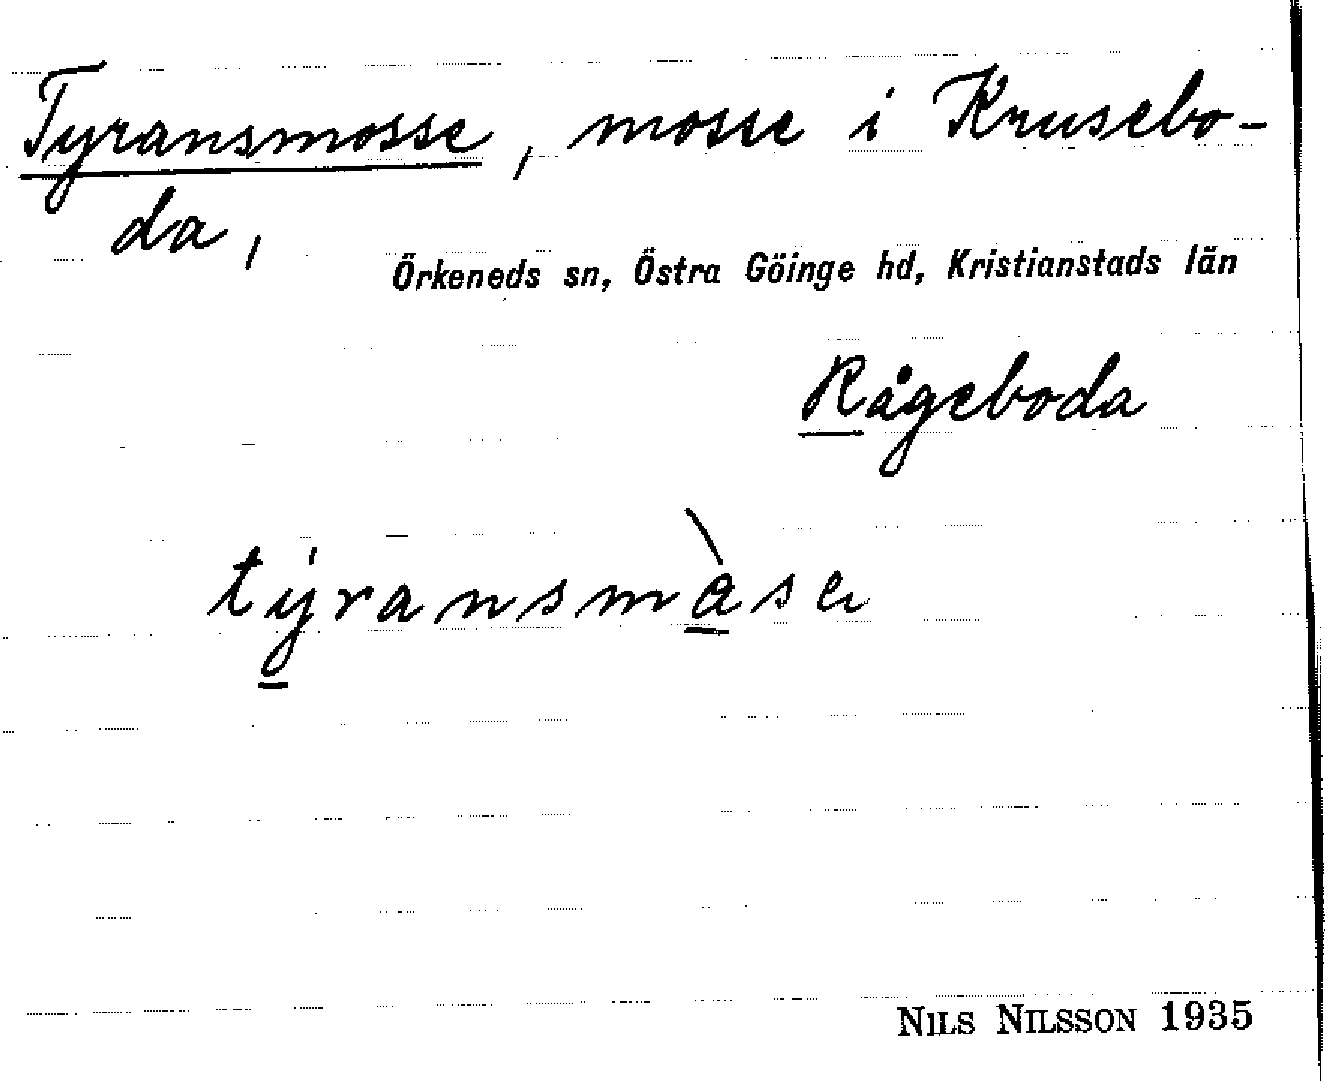 Tyransmosse, mosse i Krusebo-
da,
Örkeneds sn, Östra Göinge hd, Kristianstads län
Rågeboda
týransmàsa
NILS NILSSON 1935